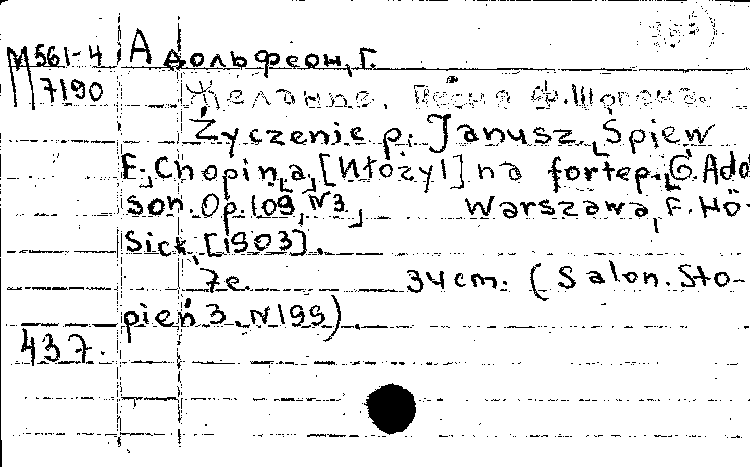 М 561-4 Адольфсон, Г.
7190 Желание. Песня Ф. Шопена.
Życzenie p. Janusz, Śpiew
F. Chopin,a, [Ułożył] na fortep. G. Ado
son. Op. 109, N3, Warszawa, F. Hö-
Sick, [1903].
7 c. 34 cm. (Salon. Sto-
pień 3. N 199).
437.